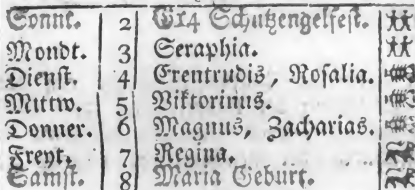 Sonnt. 2 G14 Schutzengelfest.
Mondt. 3 Seraphia.
Dienst. 4 Erentrudis, Rosalia.
Mittw. 5 Viktorinus.
Donner. 6 Magnus, Zacharias.
Freyt. 7 Regina.
Samst. 8 Maria Geburt.